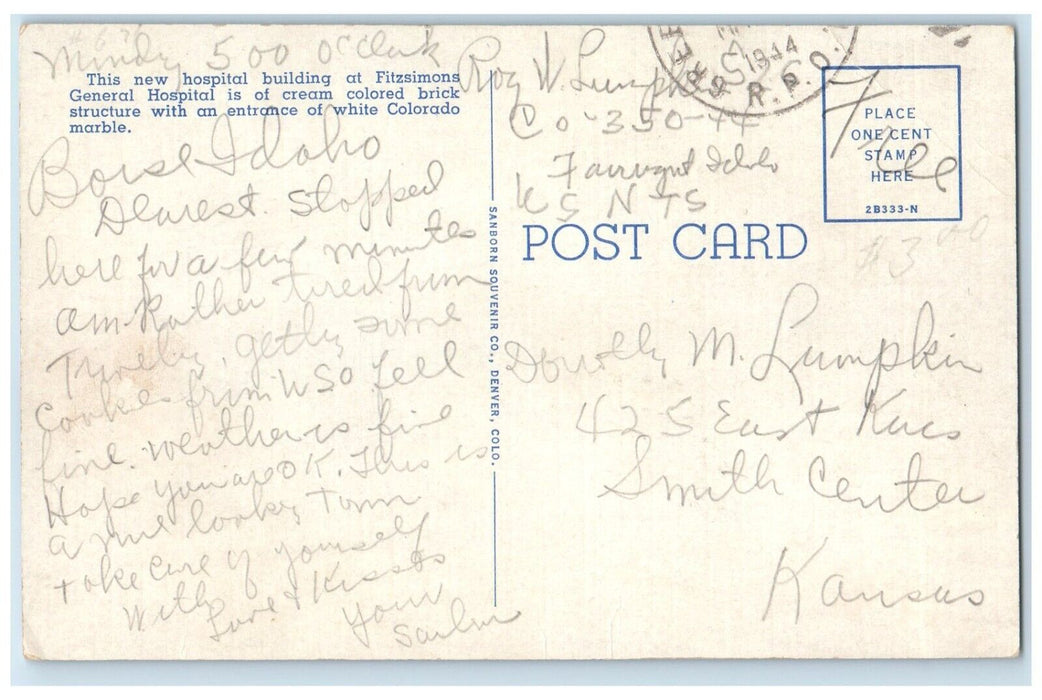 Mindy 500 O'Clock
This new hospital building at Fitzsimons
General Hospital is of cream colored brick
structure with an entrance of white Colorado
marble.
Boise Idaho
Dearest. Stopped
here for a few minutes
am Rather tired from
getting some
Cookies from USO feel
fine. weather is fine
Hope you are OK. This is
a nice looking Town
take care of yourself
With
Love & Kisses
Your
Sailor
SANBORN SOUVENIR CO., DENVER, COLO.
Roy W. Lumpkin
Co-350-44
Farragut Idaho
U S N T S
1944
R. P. O.
Free
PLACE
ONE CENT
STAMP
HERE
2B333-N
$3 00
POST CARD
Dorothy M. Lumpkin
425 East Kans
Smith Center
Kansas